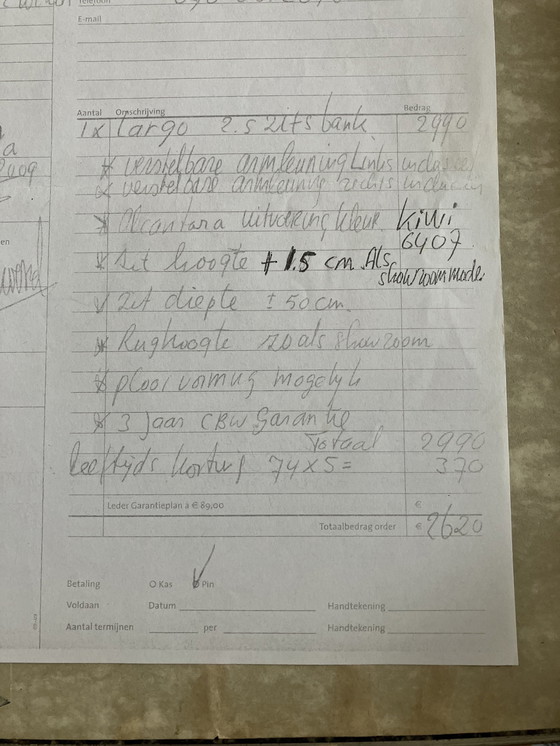 Telefoon
E-mail
Aantal Omschrijving Bedrag
1x Largo 2.5 zits bank 2990
* verstelbare armleuning Links
* verstelbare armleuning rechts
* Alcantara uitvoering kleur Kiwi
6407
* zit hoogte + 1.5 cm. Als
showroommodel.
* zit diepte ± 50 cm.
* Rughoogte zoals showroom
* plooivorming mogelijk
* 3 Jaar CBW Garantie
Totaal 2990
leeftijds korting 74 x 5 = 370
Leder Garantieplan à € 89,00 €
Totaalbedrag order € 2620
Betaling Kas Pin
Voldaan Datum Handtekening
Aantal termijnen per Handtekening